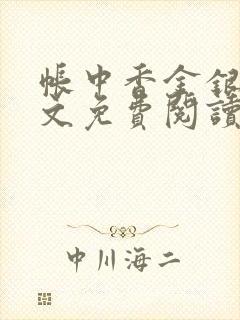 帳中香全銀
文免費閱讀
中川海二